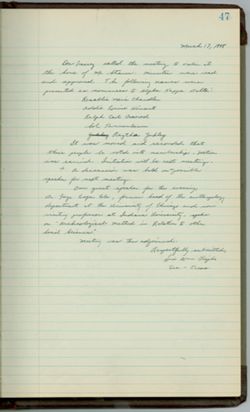 47
March 17, 1948
Dr. called the meeting to order at
the home of Mr. Minutes were read
and approved. The following names were
presented as nominees to Alpha Kappa Delta:
Rosallie Marie Chandler
Ralph Carl
Sol
It was moved and seconded that
these people be voted into membership. Motion
was carried. Initiation will be next meeting.
A discussion was held on possible
speaker for next meeting.
Our guest speaker for the evening,
Dr. Fay-Cooper Cole, former head of the anthropology
department at the University of Chicago and now
visiting professor at Indiana University, spoke
on "Archeological Method in Relation to other
Social Sciences".
Meeting was then adjourned.
Respectfully submitted,
Sec - Treas